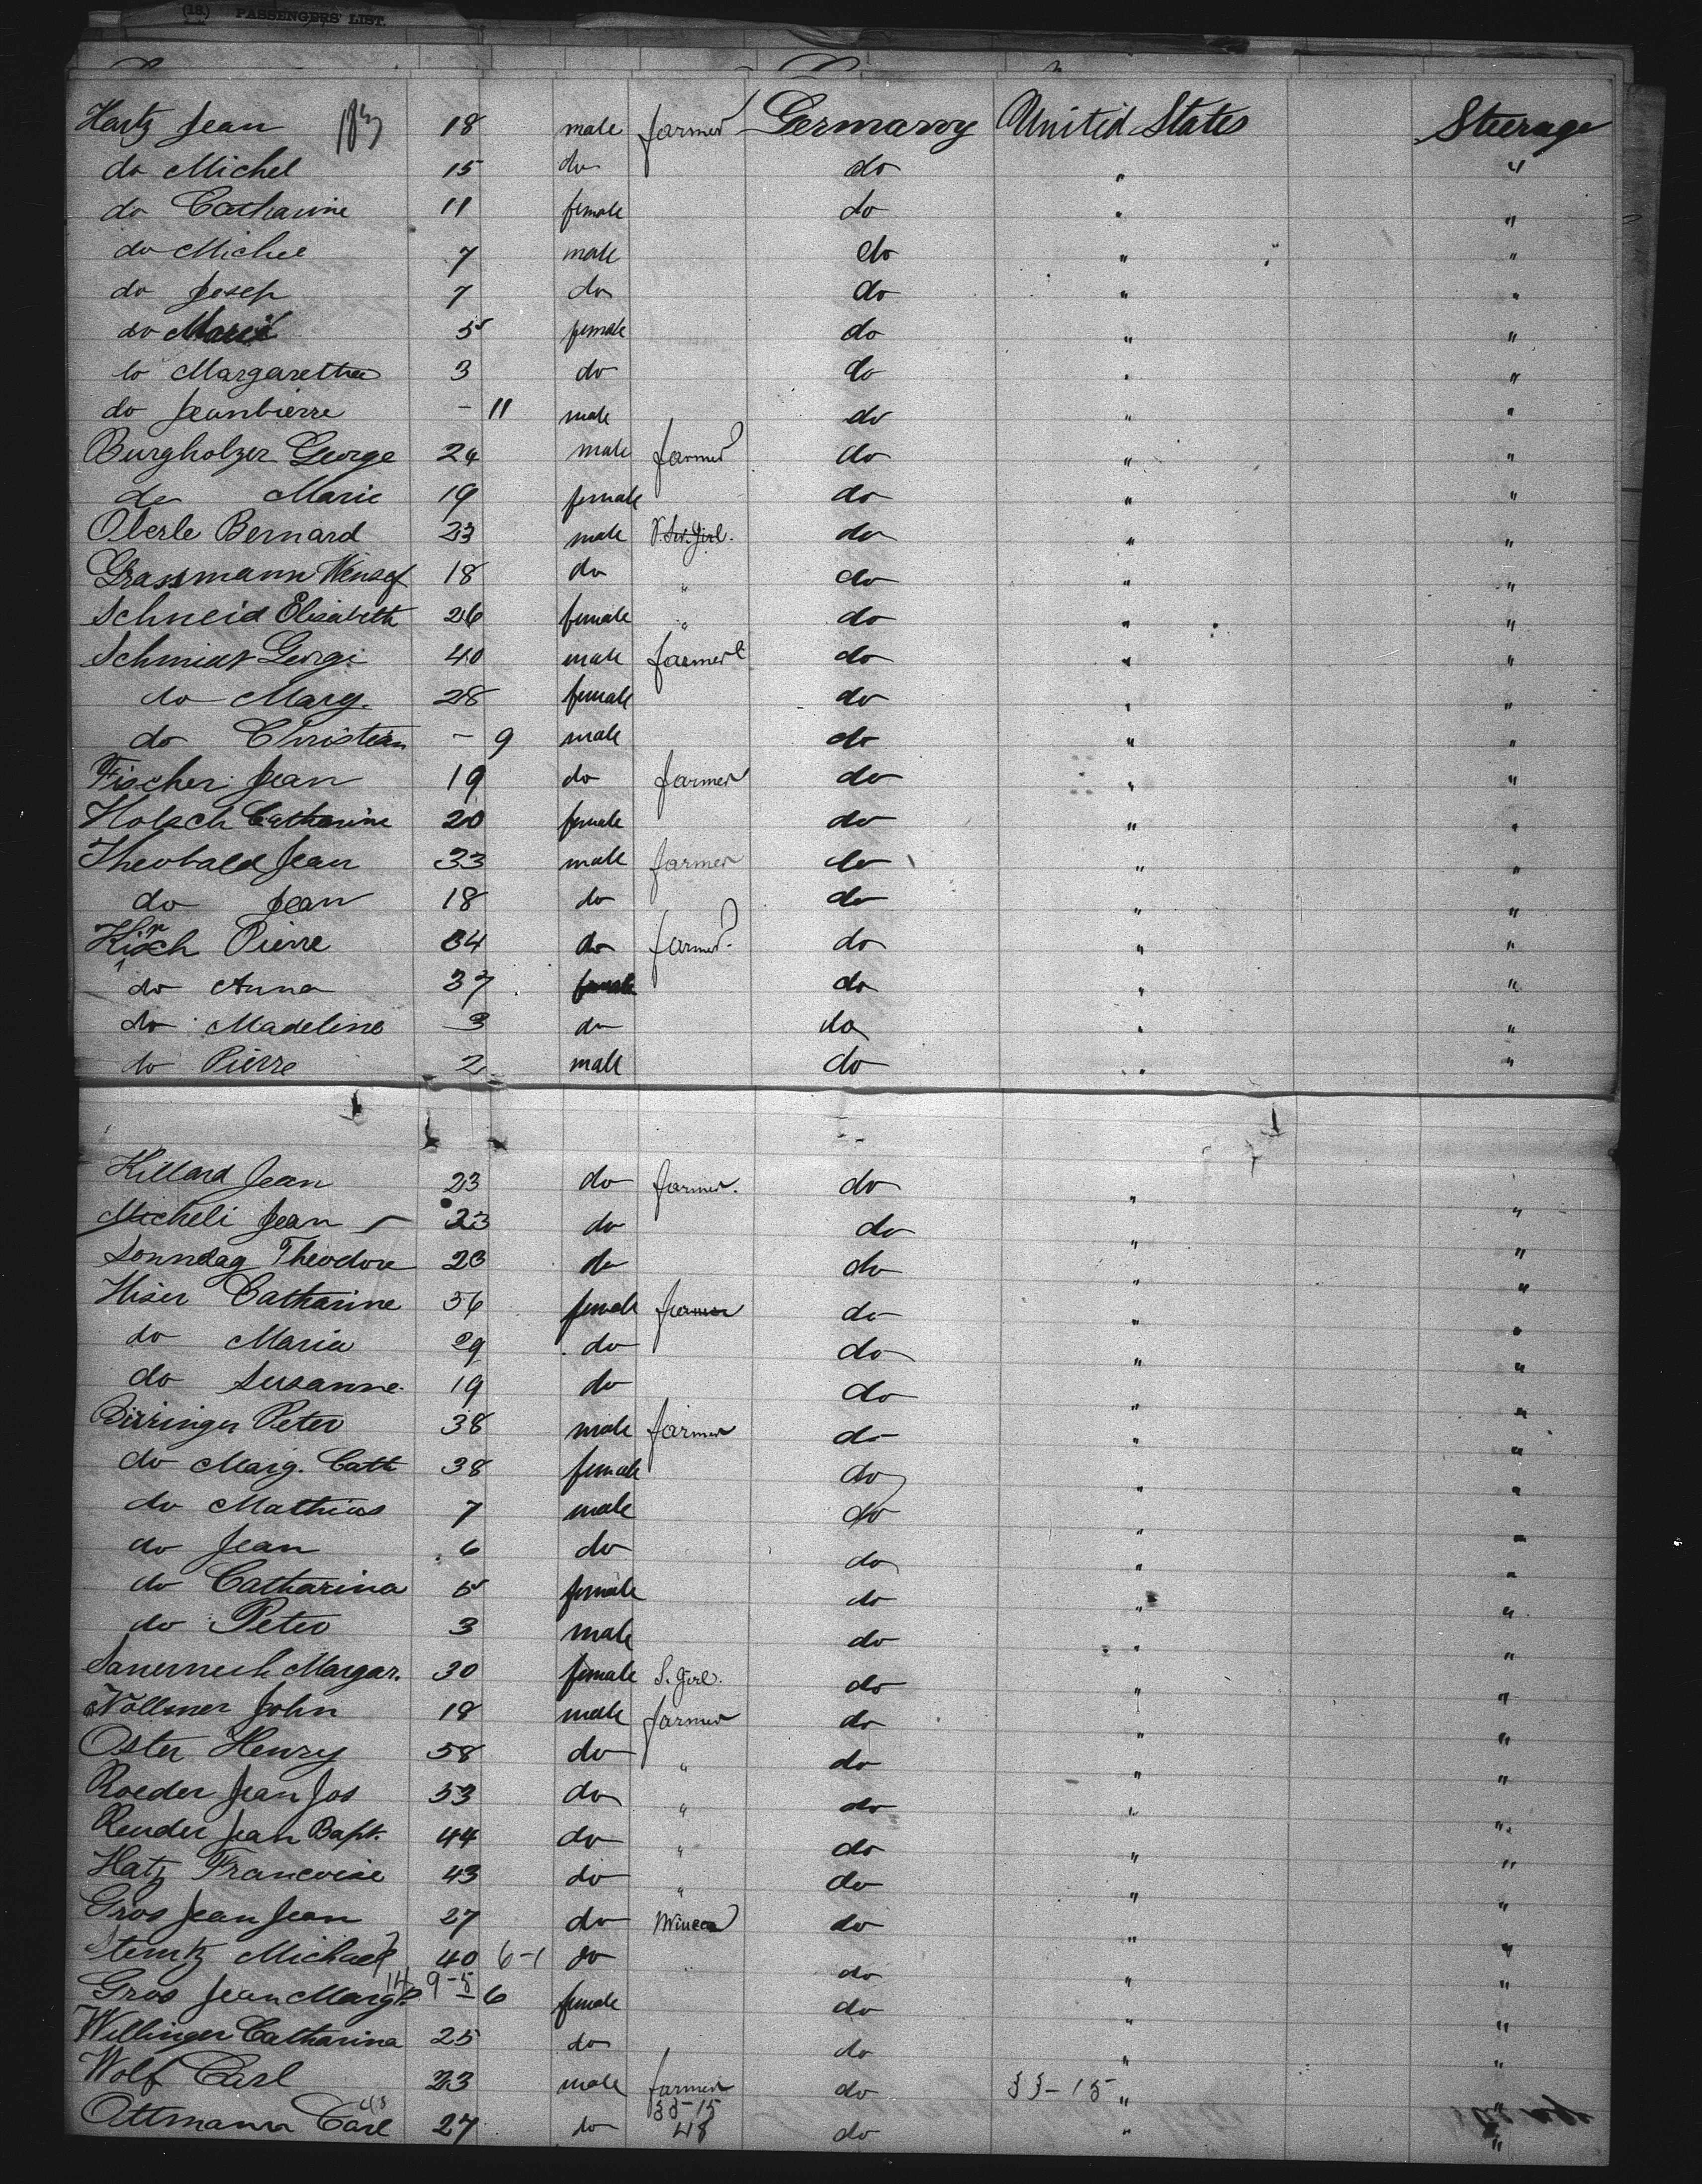 (18.) PASSENGERS' LIST.
Hartz Jean 18 male farmer Germany United States Steerage
do Michel 15 do do " "
do Catharine 11 female do " "
do Michel 7 male do " "
do Josep 7 do do " "
do Marie 5 female do " "
do Margaretha 3 do do " "
do Jeanbierre - 11 male do " "
Burgholzer George 24 male farmer do " "
do Marie 19 female do " "
Oberle Bernard 23 male Girl. do " "
Grassmann 18 do " do " "
Schneid Elisabeth 26 female " do " "
Schmidt George 40 male farmer do " "
do Marg. 28 female do " "
do Christian - 9 male do " "
Fischer Jean 19 do farmer do " "
Holsch Catharine 20 female do " "
Theobald Jean 33 male farmer do " "
do Jean 18 do do " "
Pierre 34 do farmer do " "
do Anna 37 female do " "
do Madeline 3 do do " "
do Pierre 2 male do " "
Killard Jean 23 do farmer. do " "
Micheli Jean 23 do do " "
Sonndag Theodore 23 do do " "
Hiser Catharine 56 female farmer do " "
do Maria 29 do do " "
do Susanne 19 do do " "
Birringer Peter 38 male farmer do " "
do Marg. Cath 38 female do " "
do Mathias 7 male do " "
do Jean 6 do do " "
do Catharina 5 female do " "
do Peter 3 male do " "
Margar. 30 female S. Girl. do " "
Vollmer John 18 male farmer do " "
Oster Henry 58 do " do " "
Roeder Jean Jos 53 do " do " "
Reuder Jean Bapt. 44 do " do " "
Hatz Francoise 43 do " do " "
Gros Jean Jean 27 do do " "
Michael 40 6-1 do do " "
14 9-5
Gros Jean Marg. - 6 female do " "
Willinger Catharina 25 do do " "
Wolf Carl 23 male farmer do 33-15 " "
33-15
Attmann Carl 27 do 48 do " "